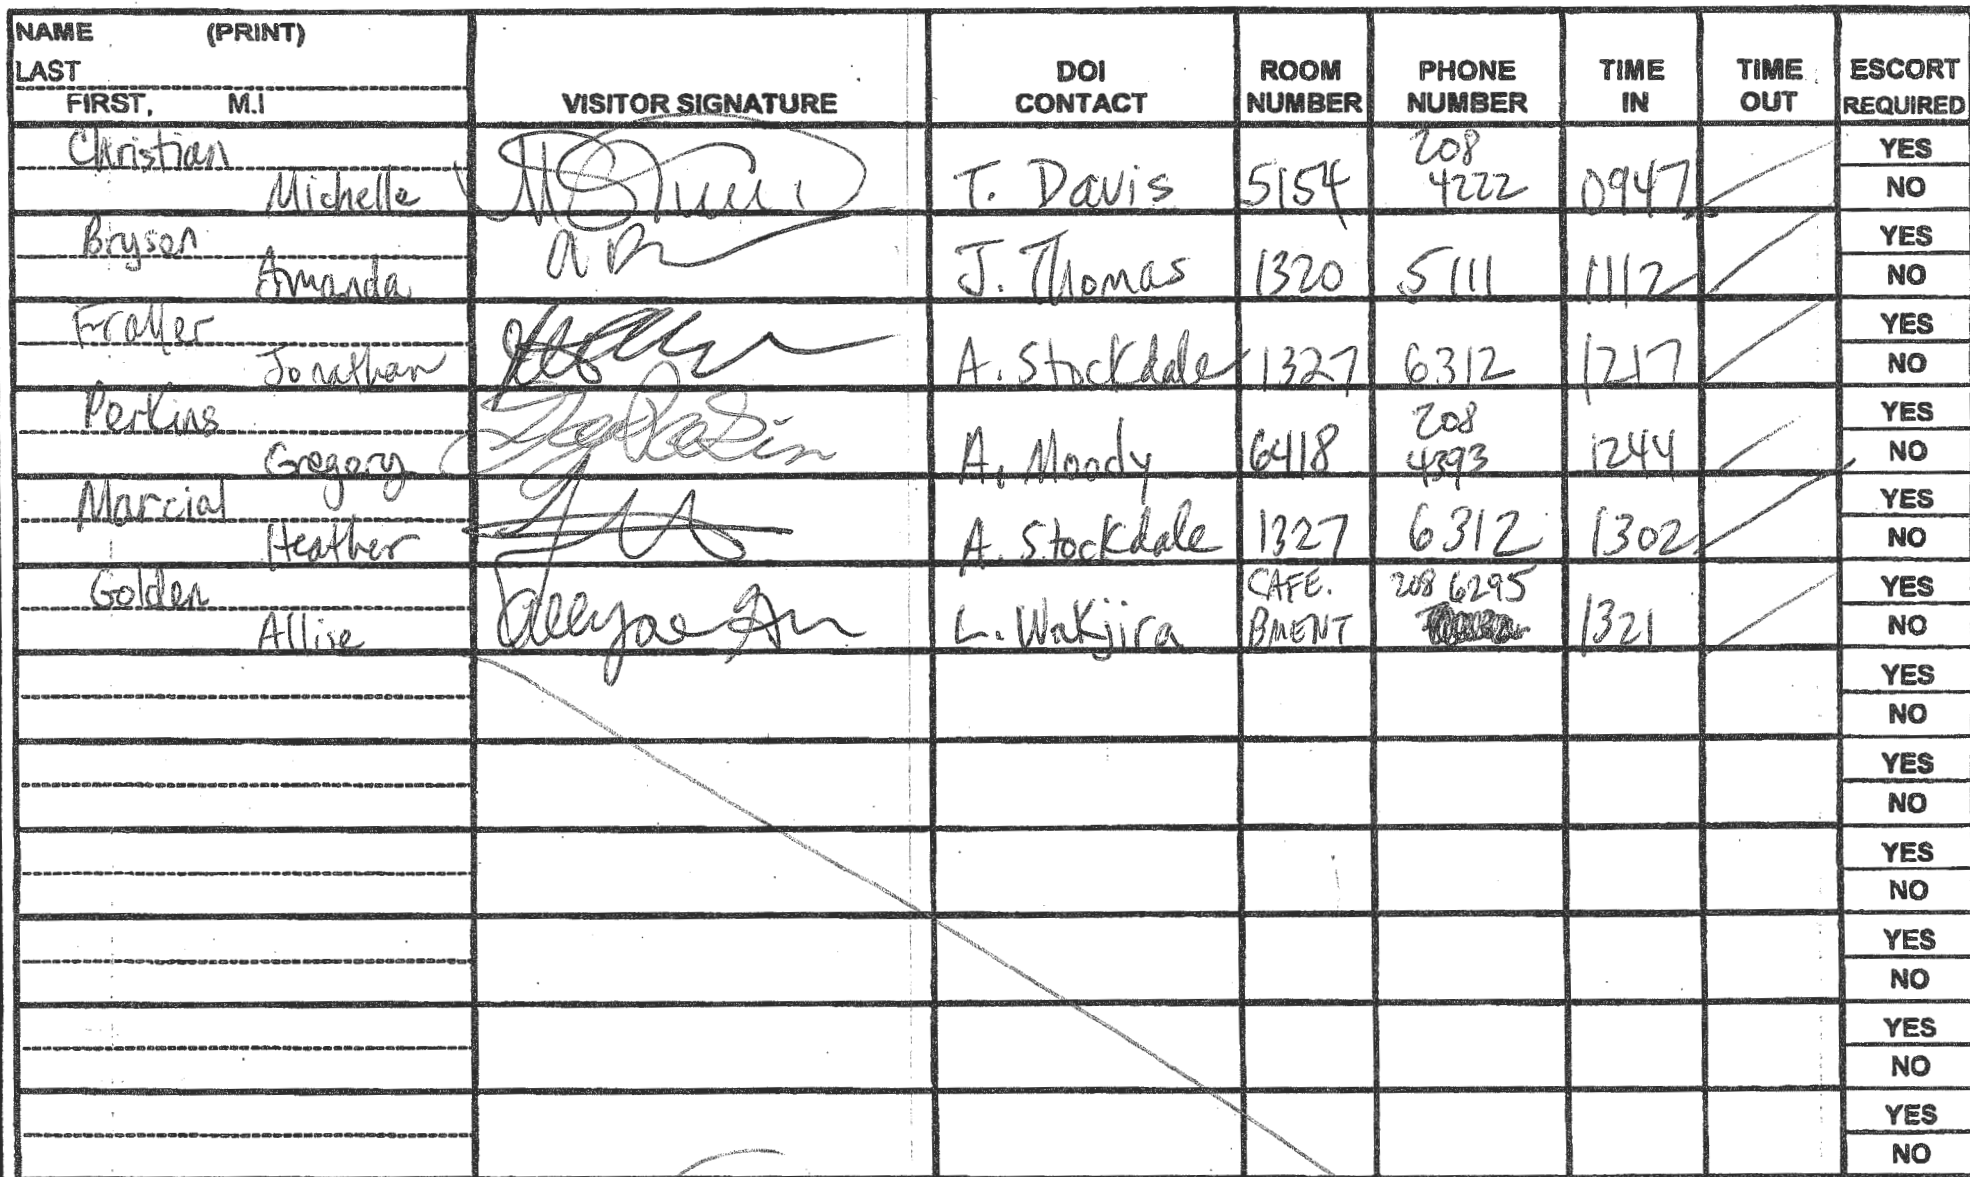 NAME (PRINT)
LAST
FIRST, M.I
VISITOR SIGNATURE
DOI
CONTACT
ROOM
NUMBER
PHONE
NUMBER
TIME
IN
TIME
OUT
ESCORT
REQUIRED
Christian
Michelle
T. Davis
5154
208
4222
0947
YES
NO
Bryson
Amanda
J. Thomas
1320
5111
1112
YES
NO
Jonathan
A. Stockdale
1327
6312
1217
YES
NO
Perkins
Gregory
A. Moody
6418
208
4393
1244
YES
NO
Marcial
Heather
A. Stockdale
1327
6312
1302
YES
NO
Golden
Allise
L. Wakjira
CAFE.
BMENT
208 6295
1321
YES
NO
YES
NO
YES
NO
YES
NO
YES
NO
YES
NO
YES
NO